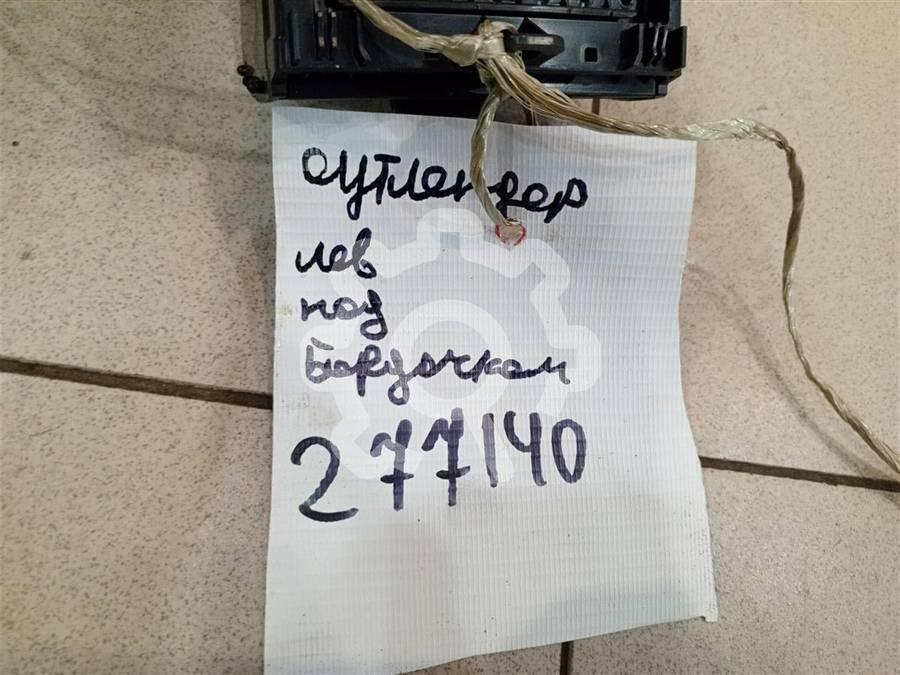 аутлендер
лев
над
бардачком
277140